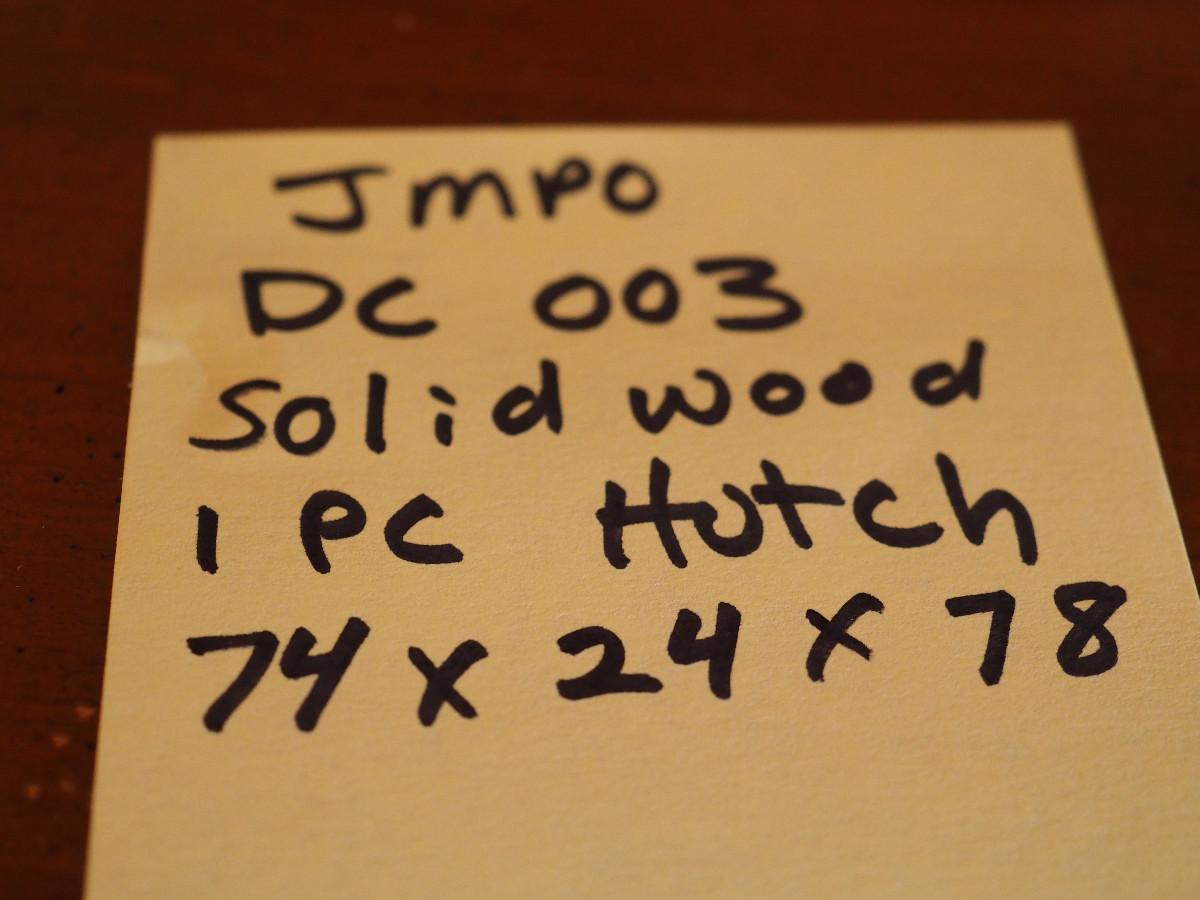 Jmpo
DC 003
Solid wood
1 PC Hutch
74 x 24 x 78